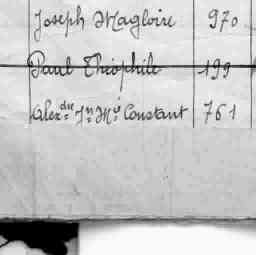 Joseph Magloire 970
Paul Théophile 199
Alex.dre Jn Mie Constant 761